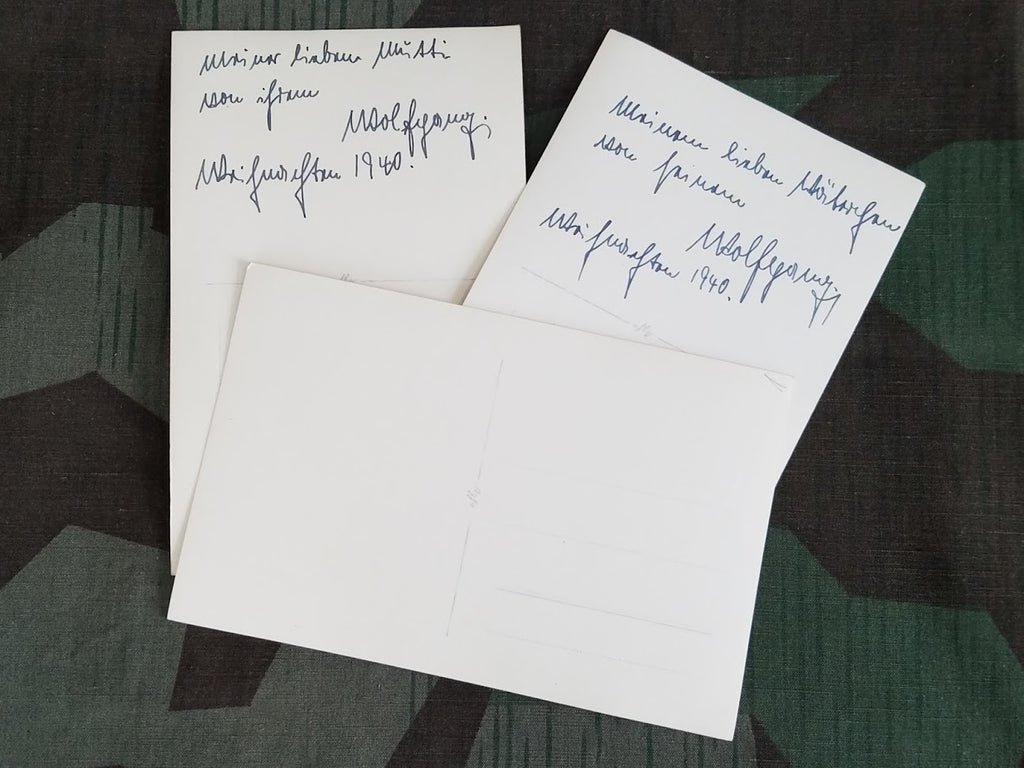 Meiner lieben Mutti
von ihrem
Wolfgang.
Weihnachten 1940.
Meinem lieben Väterchen
von seinem
Wolfgang.
Weihnachten 1940.